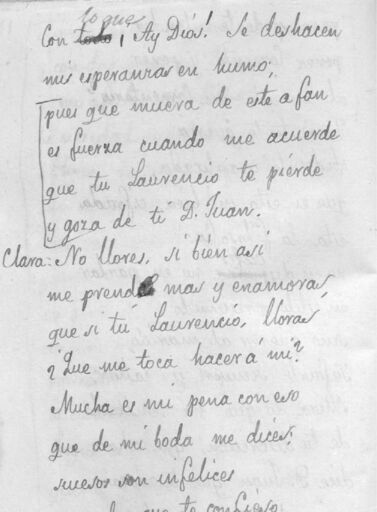 lo que
Con todo, ¡Ay Diós! Se deshacen
mis esperanzas en humo;
pues que muera de este afan
es fuerza cuando me acuerde
que tu Laurencio te piérde
y goza de ti D. Juan.
Clara: No llores, si bien asi
me prendes mas y enamoras,
que si tú, Laurencio, lloras
¿Que me toca hacer á mi?
Mucha es mi pena con eso
que de mi boda me dices;
sucesos son infelices
que te confieso